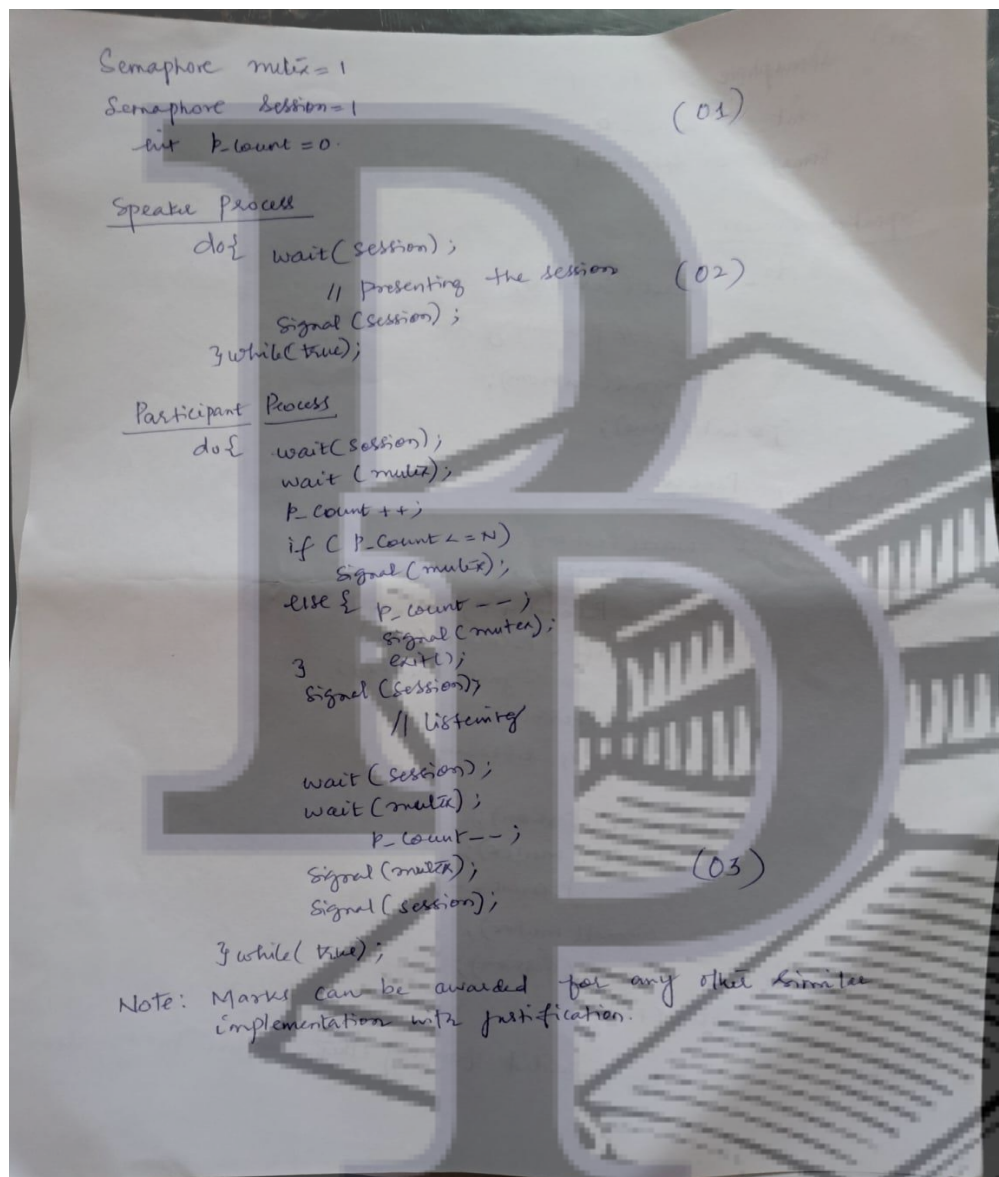 Semaphore mutex = 1
Semaphore session = 1 (01)
int p_count = 0.
Speaker Process
do{ wait(session);
// presenting the session (02)
signal(session);
}while(true);
Participant Process
do{ wait(session);
wait(mutex);
p_count++;
if ( p_count <= N)
signal(mutex);
else { p_count--;
signal(mutex);
} exit();
signal(session);
// listening
wait(session);
wait(mutex);
p_count--;
signal(mutex); (03)
signal(session);
}while(true);
Note: Marks can be awarded for any other similar
implementation with justification.